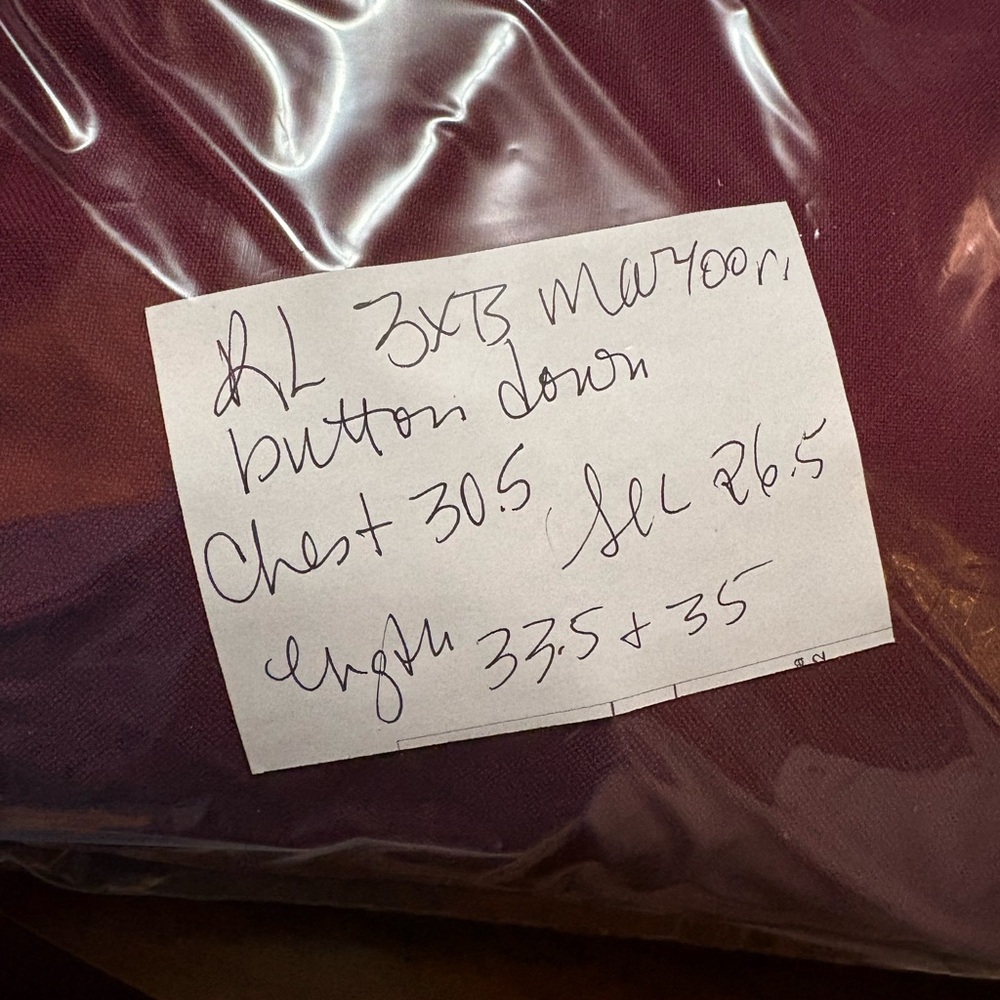 RL 3XB Maroon
button down
Chest 30.5 Slv 26.5
length 33.5 + 35